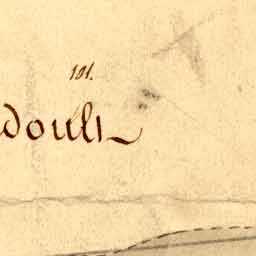 101.
doult